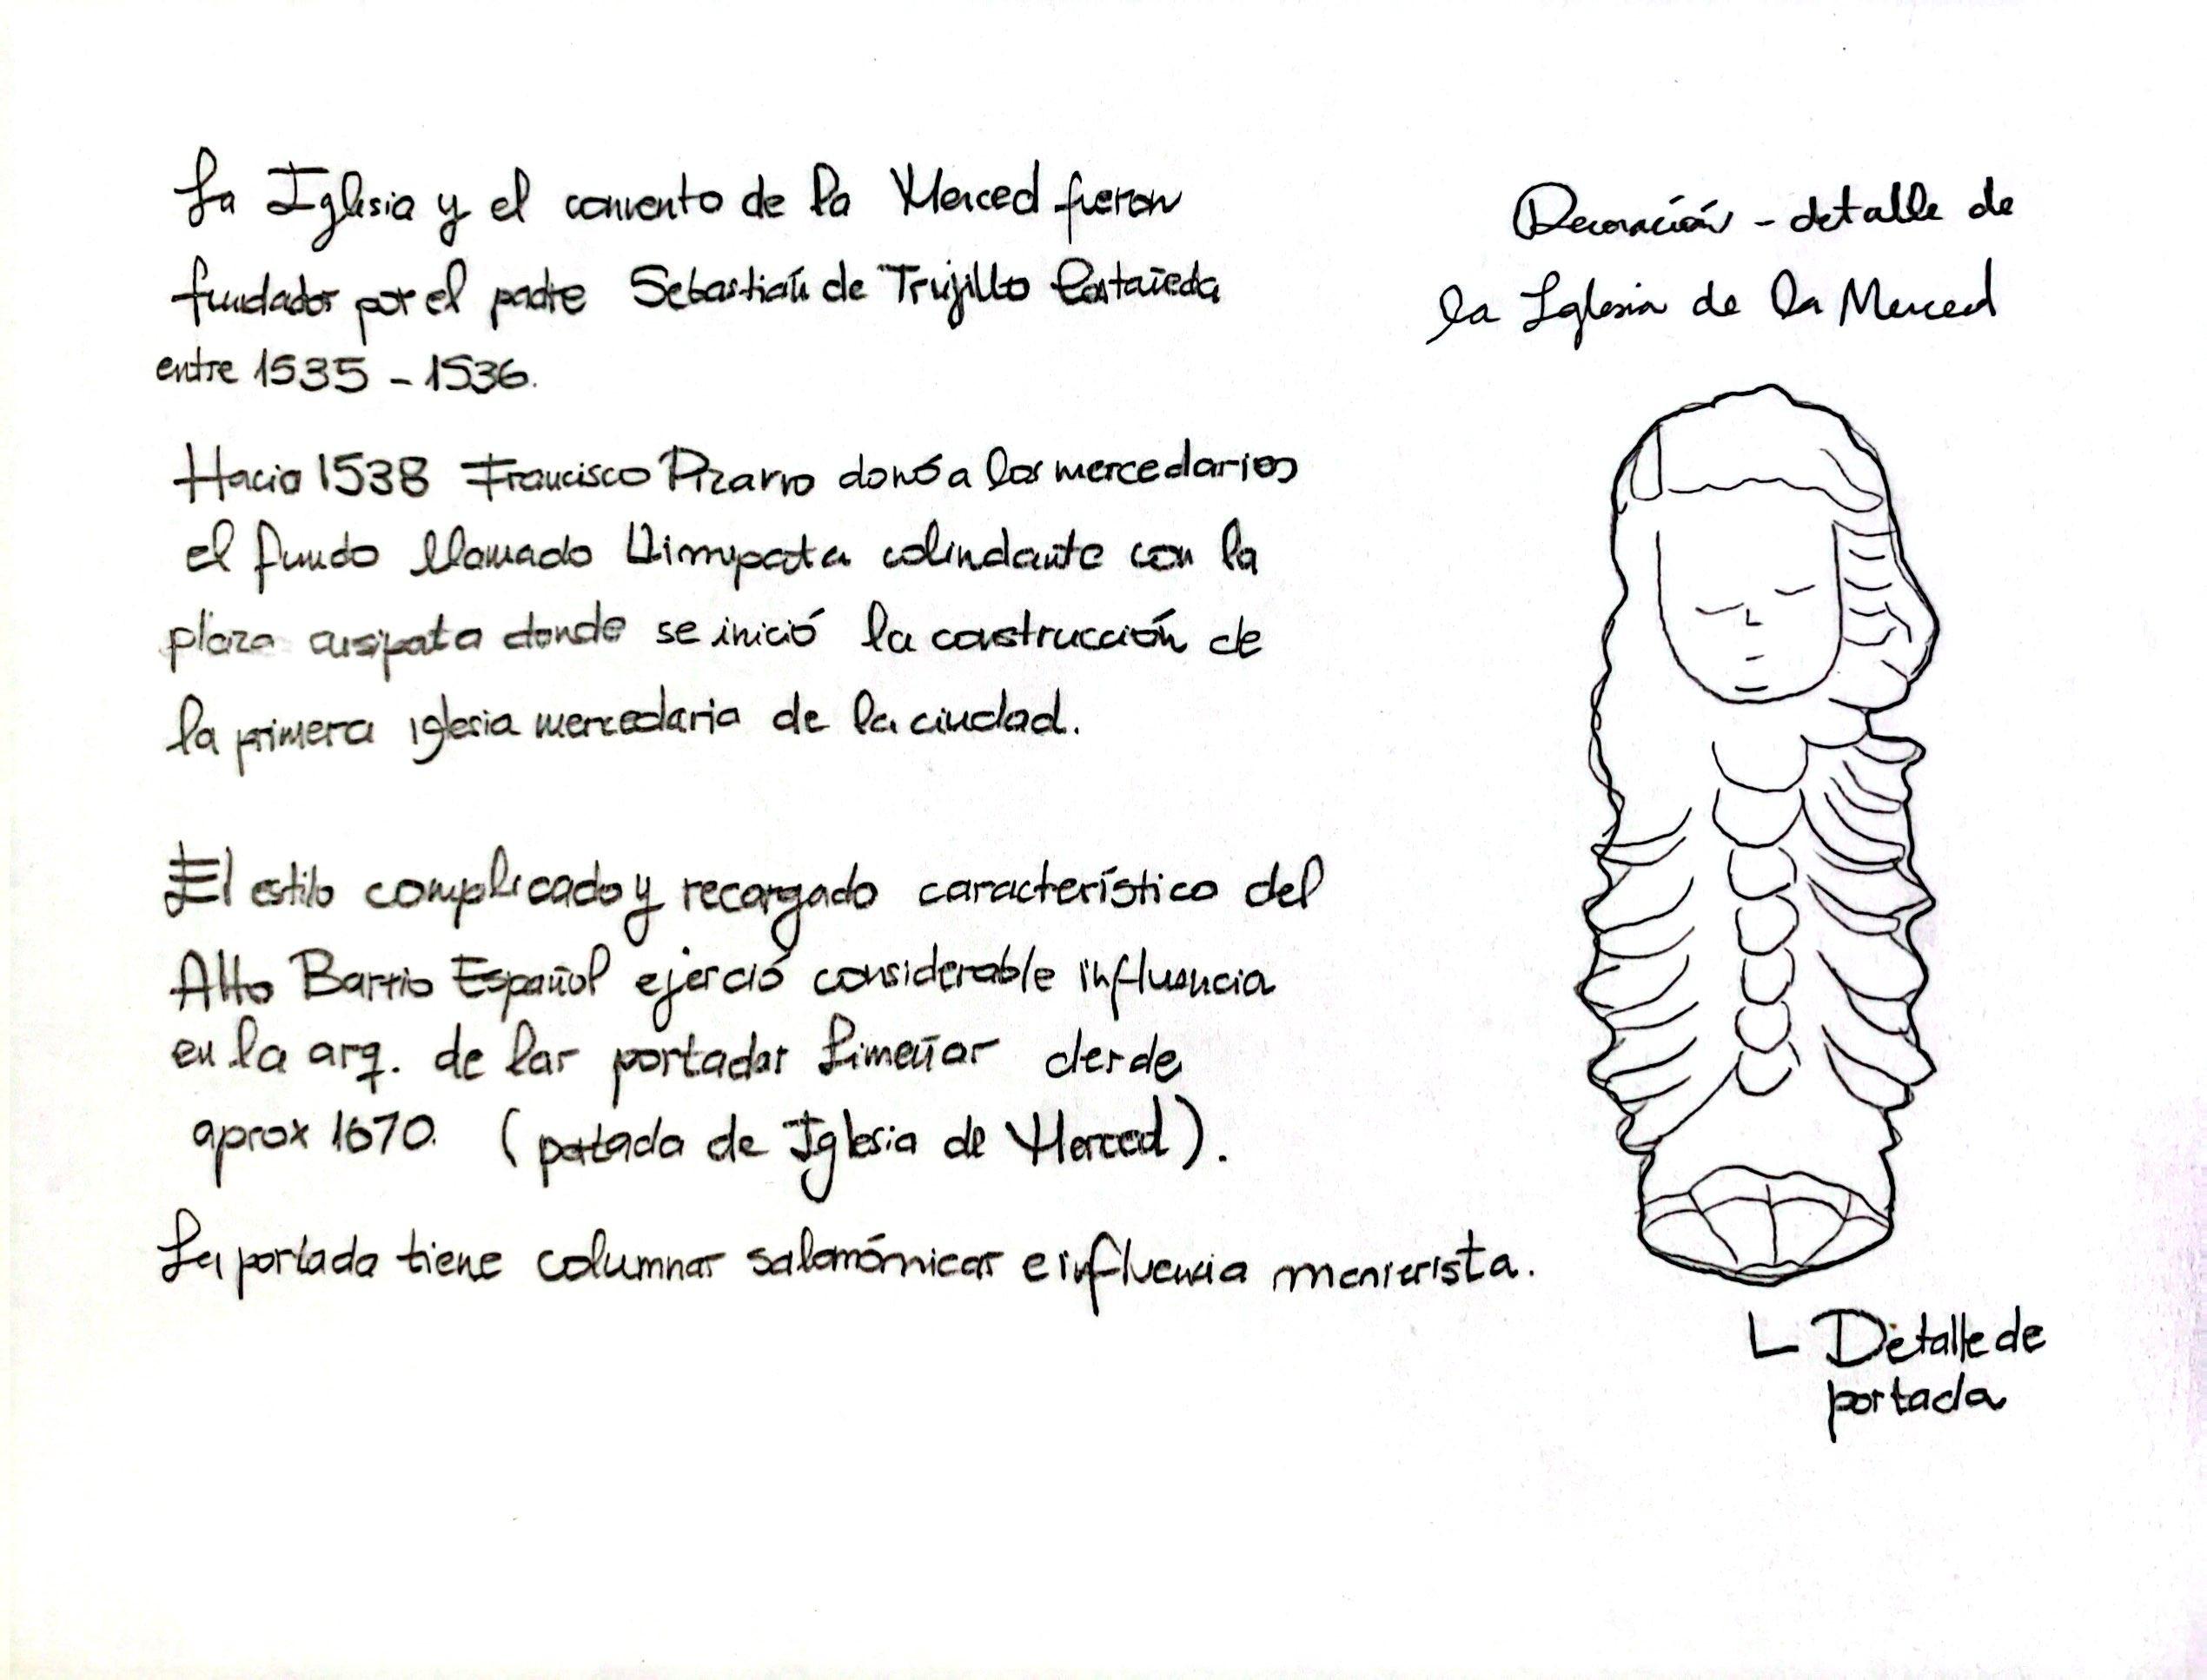 La Iglesia y el convento de la Merced fueron
fundados por el padre Sebastián de Trujillo Castañeda
entre 1535 - 1536.
Hacia 1538 Francisco Pizarro donó a los mercedarios
el fundo llamado Limipata colindante con la
plaza cusipata donde se inició la construcción de
la primera iglesia mercedaria de la ciudad.
El estilo complicado y recargado característico del
Alto Barrio Español ejerció considerable influencia
en la arq. de las portadas Limeñas desde
aprox 1670. (portada de Iglesia de Merced).
La portada tiene columnas salomónicas e influencia manierista.
Decoración - detalle de
la Iglesia de la Merced
Detalle de
portada